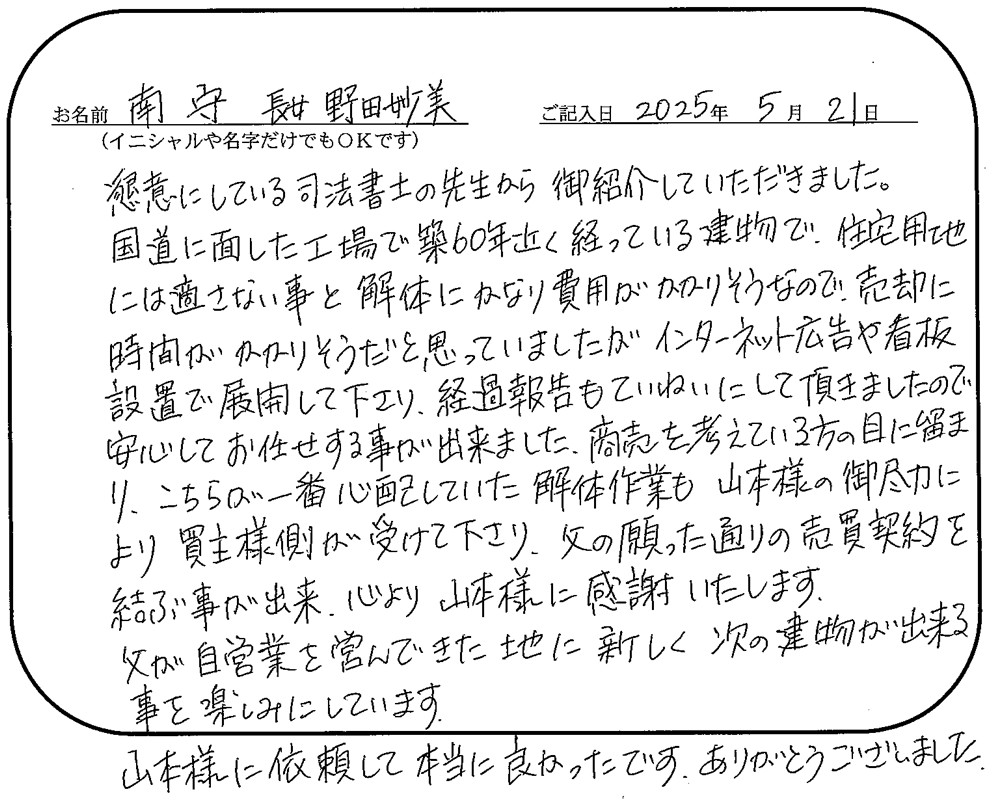 お名前 南 守 長女 野田妙美 ご記入日 2025年 5月 21日
(イニシャルや名字だけでもOKです)
懇意にしている司法書士の先生から 御紹介していただきました。
国道に面した工場で築60年近く経っている建物で、住宅用地
には適さない事と 解体にかなり費用がかかりそうなので、売却に
時間がかかりそうだと思っていましたが インターネット広告や看板
設置で展開して下さり、経過報告もていねいにして頂きましたので
安心してお任せする事が出来ました。商売を考えている方の目に留ま
り、こちらが一番心配していた 解体作業も 山本様の御尽力に
より 買主様側が受けて下さり、父の願った通りの売買契約を
結ぶ事が出来、心より 山本様に感謝いたします。
父が自営業を営んできた土地に新しく 次の建物が出来る
事を楽しみにしています。
山本様に依頼して本当に良かったです。ありがとうございました。